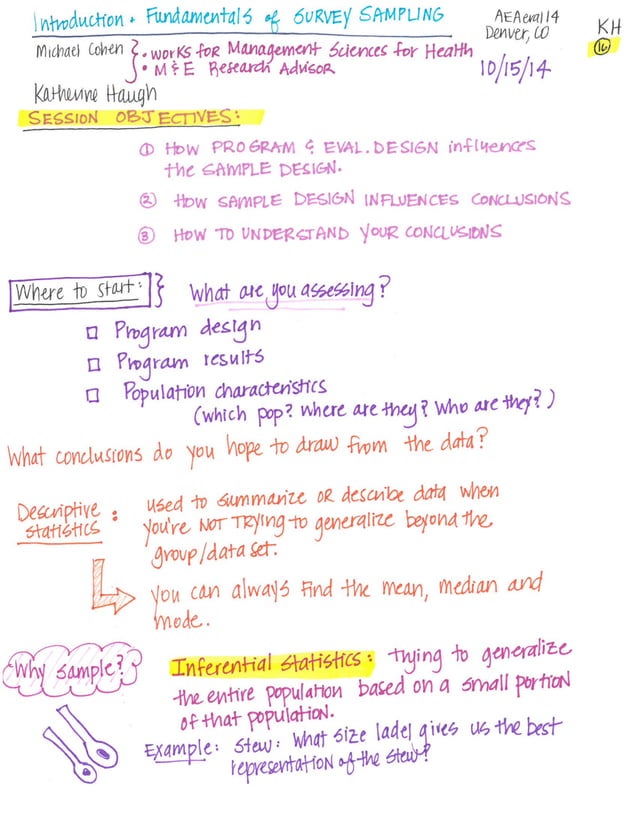 Introduction + Fundamentals of SURVEY SAMPLING
AEAeval14
Denver, CO
KH
16
Michael Cohen
• works for Management Sciences for Health
• M & E Research Advisor
10/15/14
Katherine Haugh
SESSION OBJECTIVES:
① HOW PROGRAM & EVAL. DESIGN influences
the SAMPLE DESIGN.
② HOW SAMPLE DESIGN INFLUENCES CONCLUSIONS
③ HOW TO UNDERSTAND YOUR CONCLUSIONS
Where to start:
What are you assessing?
☐ Program design
☐ Program results
☐ Population characteristics
(which pop? Where are they? Who are they?)
What conclusions do you hope to draw from the data?
Descriptive
statistics :
used to summarize OR describe data when
you're NOT TRYING to generalize beyond the
group/data set.
you can always find the mean, median and
mode.
Why sample?
Inferential statistics: trying to generalize
the entire population based on a small portion
of that population.
Example: Stew: What size ladel gives us the best
representation of the stew?